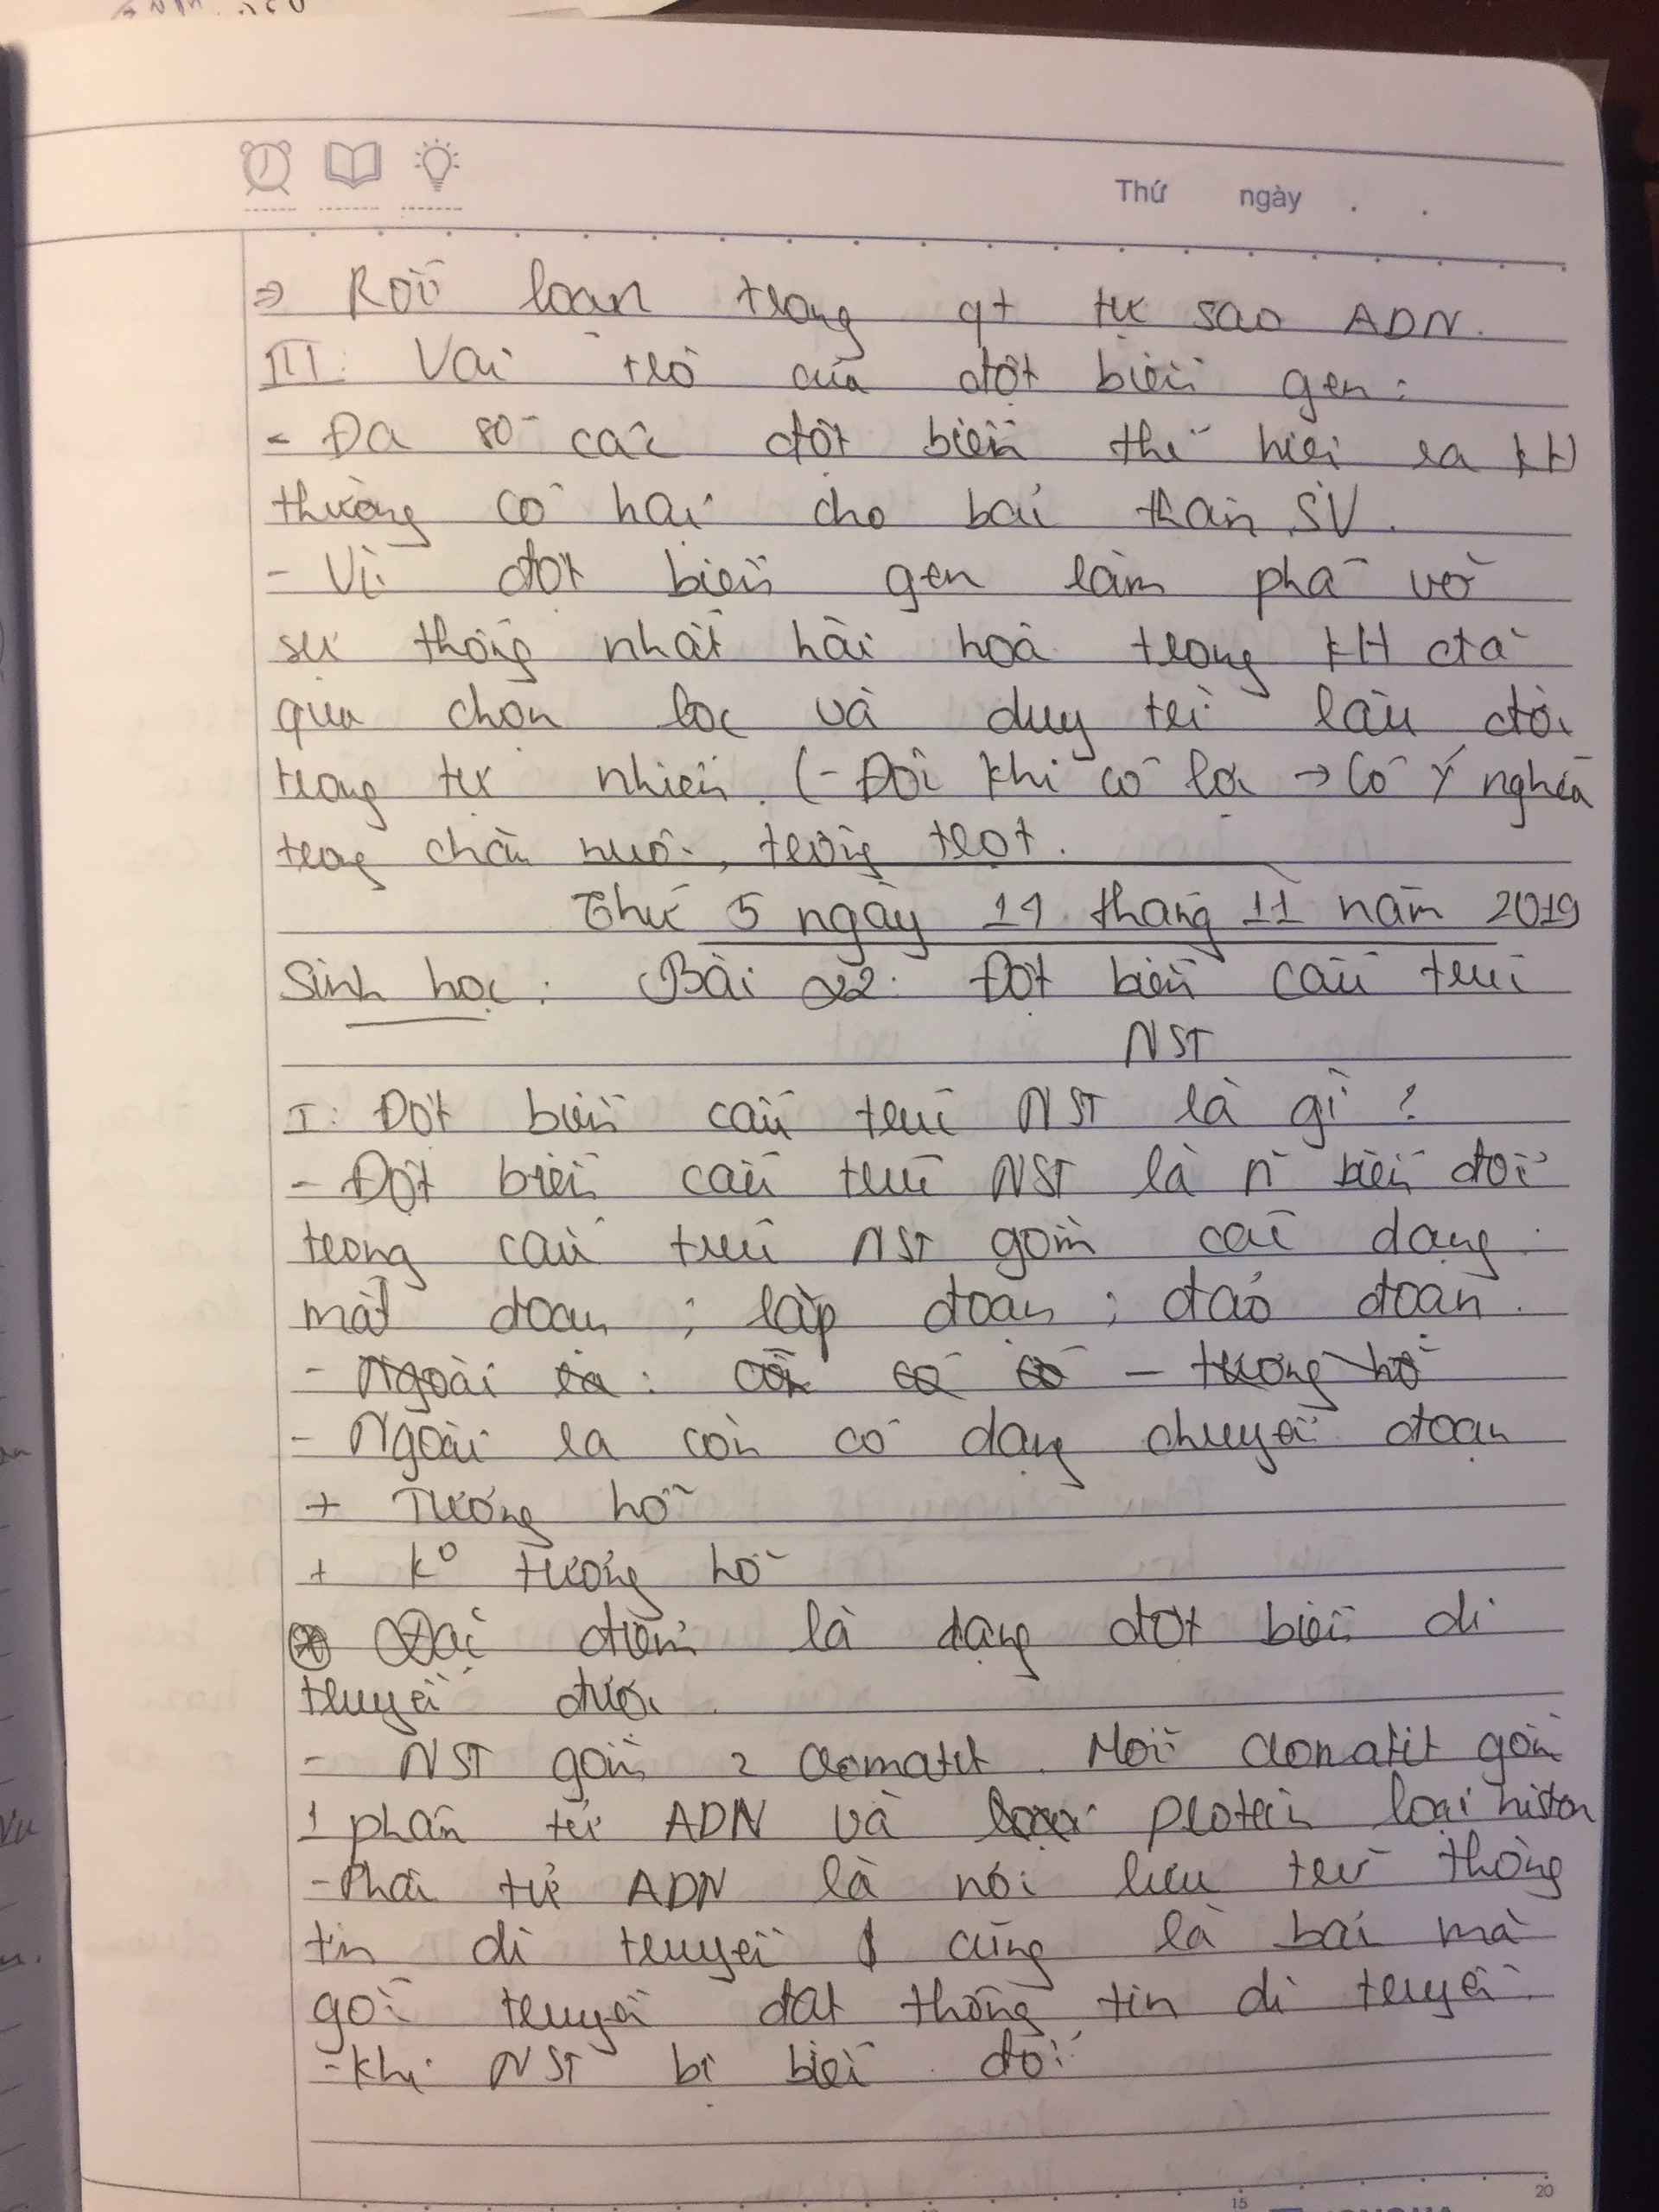 Thứ ngày . .
⇒ Rối loạn trong qt tự sao ADN.
III. Vai trò của đột biến gen:
- Đa số các đột biến thể hiện ra kH
thường có hại cho bản thân SV.
- Vì đột biến gen làm phá vỡ
sự thống nhất hài hoà trong kH đã
qua chọn lọc và duy trì lâu đời
trong tự nhiên. (- Đôi khi có lợi → Có ý nghĩa
trong chăn nuôi, trồng trọt.
Thứ 5 ngày 11 tháng 11 năm 2019
Sinh học: Bài 22: Đột biến cấu trúc
NST
I: Đột biến cấu trúc NST là gì?
- Đột biến cấu trúc NST là n~ biến đổi
trong cấu trúc NST gồm các dạng:
mất đoạn; lặp đoạn; đảo đoạn.
- Ngoài ra: còn có có - tương hỗ
- Ngoài ra còn có dạng chuyển đoạn
+ Tương hỗ
+ k° tương hỗ
* Đặc điểm là dạng đột biến di
truyền được.
- NST gồm 2 cromatit. Mỗi cromatit gồm
1 phân tử ADN và loại protein loại histon
- Phân tử ADN là nơi lưu trữ thông
tin di truyền cũng là bản mã
gốc truyền đạt thông tin di truyền.
- khi NST bị biến đổi
15 20